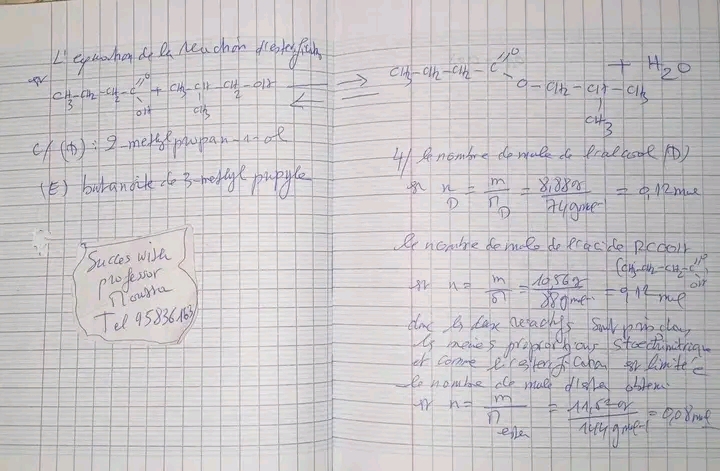 L'équation de la réaction d'estérification
est
CH3-CH2-CH2-C(=O)OH + CH3-CH(CH3)-CH2-OH ⇌
c/ (D) : 2-methylpropan-1-ol
(E) butanoate de 3-methyl propyle
Succes with
professor
Moussa
Tel 95836163
CH3-CH2-CH2-C(=O)O-CH2-CH(CH3)-CH3 + H2O
4/ le nombre de mole de l'alcool (D)
est n_D = m/M_D = 8,88g/74gmol-1 = 0,12mol
le nombre de mole de l'acide RCOOH
(CH3-CH2-CH2-C(=O)OH)
est n = m/M = 10,56g/88gmol-1 = 0,12 mol
donc les deux réactifs sont pris dans
les memes proportions Stoechimetrique
et comme l'esterification est limitée
le nombre de mole d'ester obtenu
est n = m/M_ester = 11,52g/144gmol-1 = 0,08mol